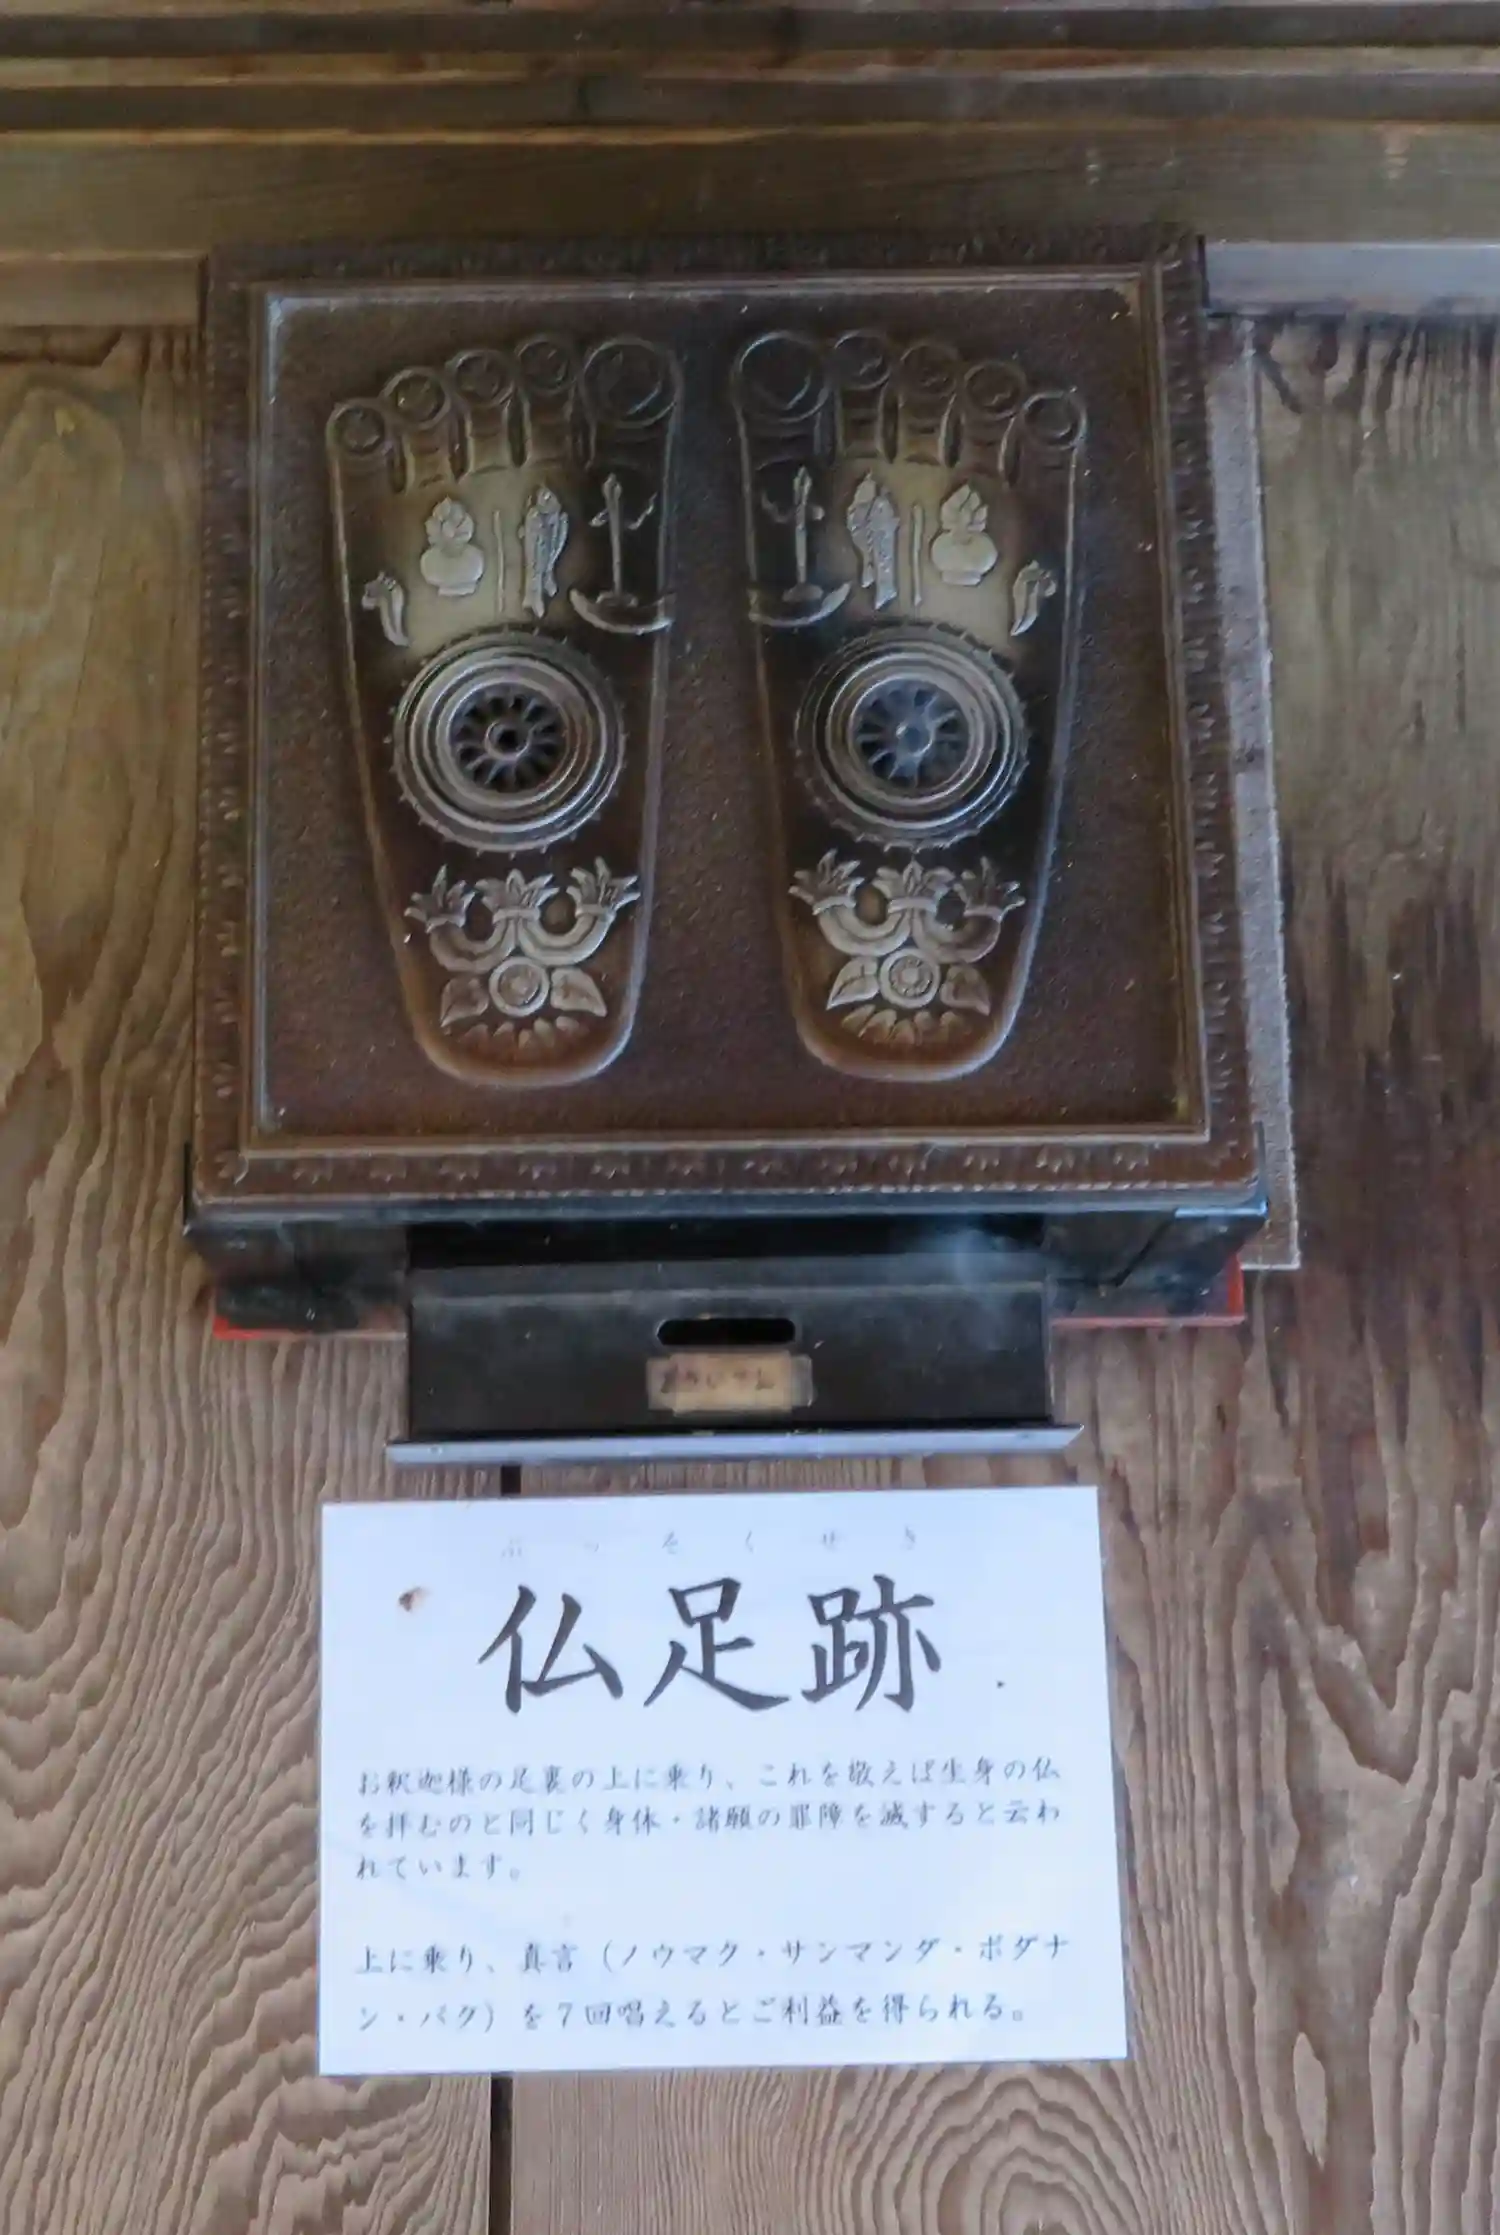 おさいせん
ぶっそくせき
仏足跡
お釈迦様の足裏の上に乗り、これを敬えば生身の仏
を拝むのと同じく身体・諸願の罪障を滅すると云わ
れています。
上に乗り、真言（ノウマク・サンマンダ・ボダナ
ン・バク）を７回唱えるとご利益を得られる。